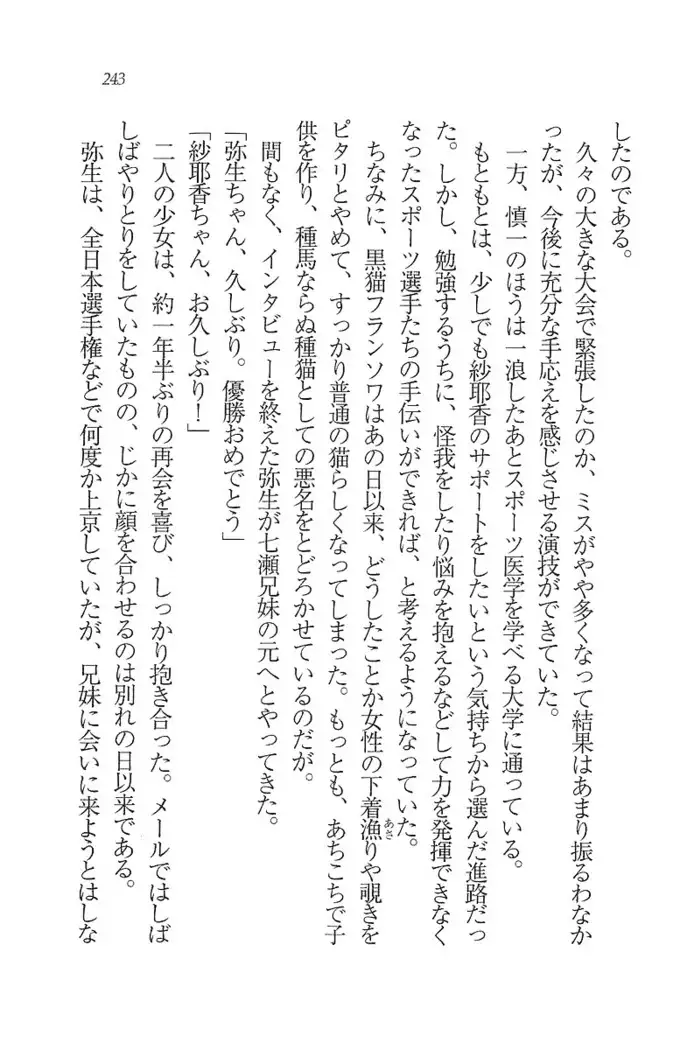 243
したのである。
久々の大きな大会で緊張したのか、ミスがやや多くなって結果はあまり振るわなか
ったが、今後に充分な手応えを感じさせる演技ができていた。
一方、慎一のほうは一浪したあとスポーツ医学を学べる大学に通っている。
もともとは、少しでも紗耶香のサポートをしたいという気持ちから選んだ進路だっ
た。しかし、勉強するうちに、怪我をしたり悩みを抱えるなどして力を発揮できなく
なったスポーツ選手たちの手伝いができれば、と考えるようになっていた。
ちなみに、黒猫フランソワはあの日以来、どうしたことか女性の下着漁あさりや覗きを
ピタリとやめて、すっかり普通の猫らしくなってしまった。もっとも、あちこちで子
供を作り、種馬ならぬ種猫としての悪名をとどろかせているのだが。
間もなく、インタビューを終えた弥生が七瀬兄妹の元へとやってきた。
「弥生ちゃん、久しぶり。優勝おめでとう」
「紗耶香ちゃん、お久しぶり！」
二人の少女は、約一年半ぶりの再会を喜び、しっかり抱き合った。メールではしば
しばやりとりをしていたものの、じかに顔を合わせるのは別れの日以来である。
弥生は、全日本選手権などで何度か上京していたが、兄妹に会いに来ようとはしな